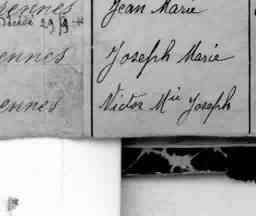 ennes Jean Marie
29/9
ennes Joseph Marie
ennes Victor Mie Joseph